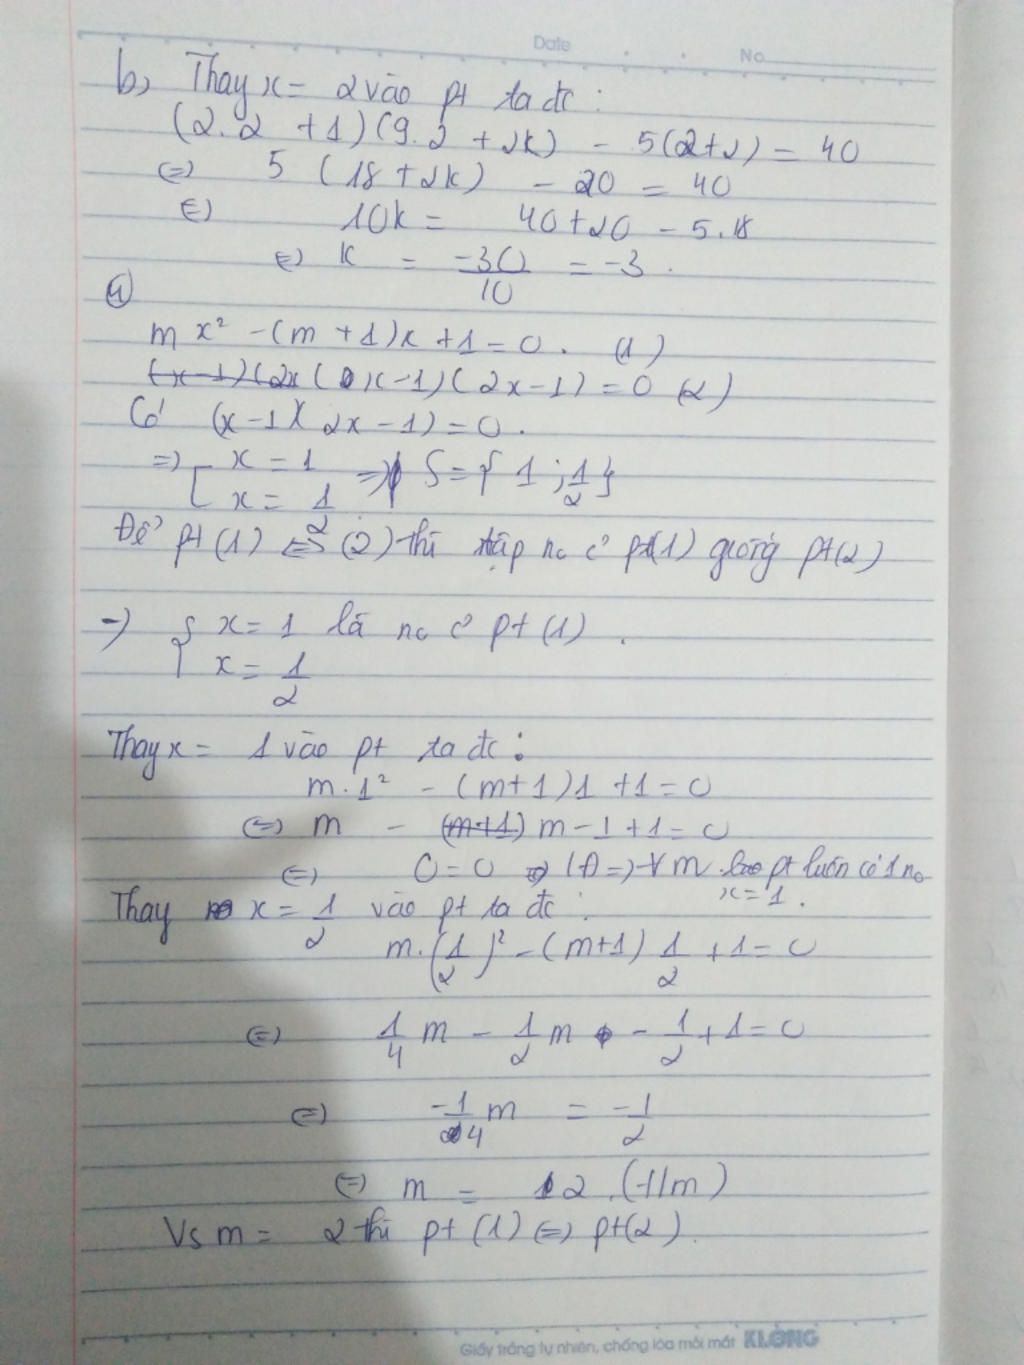 Date No
b, Thay x = 2 vào pt ta đc :
(2.2 + 1)(9.2 + 2k) - 5(2+2) = 40
<=> 5 (18 + 2k) - 20 = 40
<=> 10k = 40 + 20 - 5.18
<=> k = -30/10 = -3 .
④
m x² - (m + 1)x + 1 = 0 . (1)
(x - 1)(2x - 1) = 0 (2)
Có (x - 1)(2x - 1) = 0 .
=> [ x = 1
x = 1/2 => S = { 1 ; 1/2 }
Để pt (1) <=> (2) thì tập no c̉ pt(1) giống pt(2)
-) { x = 1 là no c̉ pt (1) .
x = 1/2
Thay x = 1 vào pt ta đc :
m . 1² - (m+1)1 + 1 = 0
<=> m - m - 1 + 1 = 0
<=> 0 = 0 => (Đ) => ∀m pt luôn có 1 no
x = 1 .
Thay x = 1/2 vào pt ta đc :
m . (1/2)² - (m+1) 1/2 + 1 = 0
<=> 1/4 m - 1/2 m - 1/2 + 1 = 0
<=> -1/4 m = -1/2
<=> m = 2 . (t/m)
Vs m = 2 thì pt (1) <=> pt(2) .
Giấy trắng tự nhiên, chống lóa mỏi mắt KLONG